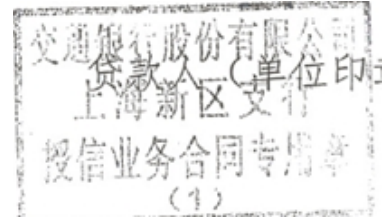 交通银行股份有限公司
贷款人（单位印章
上海新区支行
授信业务合同专用章
（1）